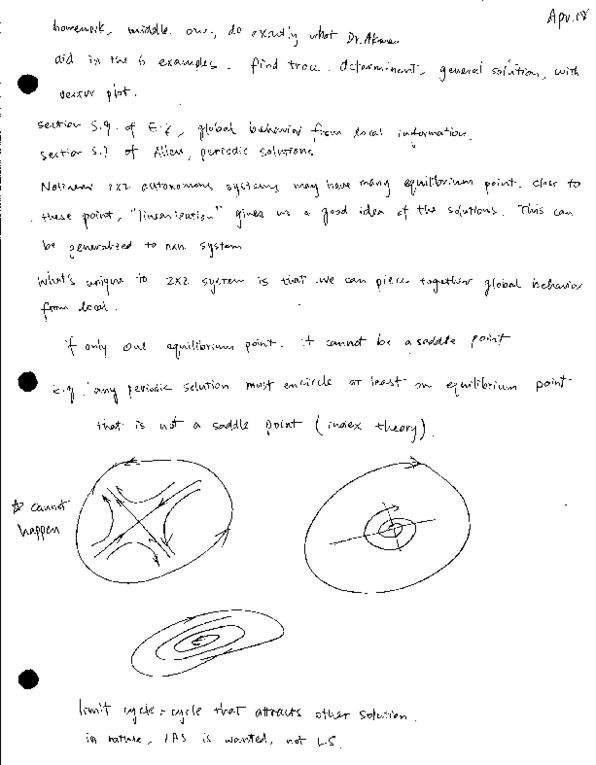 Apr. 18
homework, middle one, do exactly what Dr.
did in the 6 examples. find trace. determinent, general solution, with
vector plot.
section 5.9. of E.K, global behavior from local information.
section 5.7 of Allen, periodic solutions
Nolinear 2x2 autonomous systems may have many equilibrium point. close to
these point, "linearization" gives us a good idea of the solutions. This can
be generalized to nxn system
What's unique to 2x2 system is that we can piece together global behavior
from local.
if only one equilibrium point. it cannot be a saddle point
e.g. any periodic solution must encircle at least an equilibrium point
that is not a saddle point (index theory).
☆ cannot
happen
limit cycle = cycle that attracts other solution.
in nature, is wanted, not L.S.